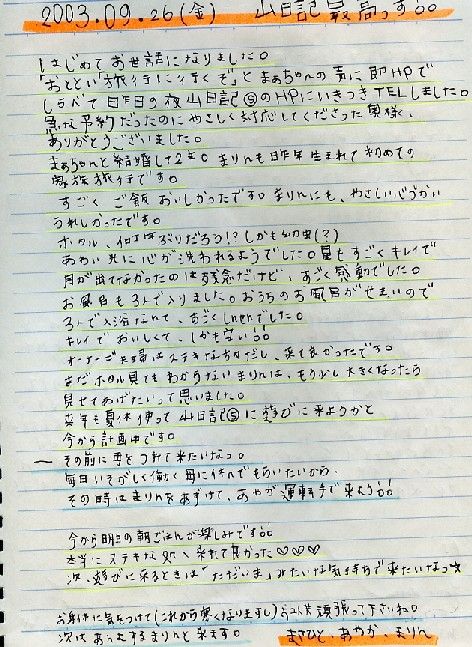 2003.09.26(金) 山日記最高っす!!
はじめてお世話になりました。
「おとといに旅行に行くぞ」とまぁちゃんの声に即HPで
しらべて昨日の夜山日記⑤のHPにいきつきTELしました。
急な予約だったのにやさしく対応してくださった奥様、
ありがとうございました。
まぁちゃんと結婚して2年。まりんも昨年生まれて初めての
家族旅行です。
すごくご飯おいしかったです。まりんにも、やさしい
うれしかったです。
ホタル、何年ぶりだろう!?しかも幼虫(?)
あわい光に心が洗われるようでした。星もすごくキレイで
月が出てなかったのは残念だけど、すごく感動でした。
お風呂も3人で入りました。おうちのお風呂がせまいので
3人で入浴なんて、すごくhappyでした。
キレイでおいしくて、しかも安い!!
オーナーご夫婦はステキな方だし、来て良かったです。
まだホタル見てもわからないまりんは、もう少し大きくなったら
見せてあげたいって思いました。
来年も夏休使って山日記⑤に遊びに来ようかと
今から計画中です。
— その前に母をつれて来たいなっ。
毎日いそがしく働く母に休んでもらいたいから。
その時はまりんをあずけて、あやが運転手で来よう!!
今から明日の朝ごはんが楽しみです!!
本当にステキな処へ来れて良かった♡♡♡
次、遊びに来るときは「ただいま」みたいな気持ちで来たいなっ☆
お身体に気をつけて(これから寒くなりますし)頑張って下さいね。
次はあっとするまりんと来ます。 まさひと、あやか、まりん